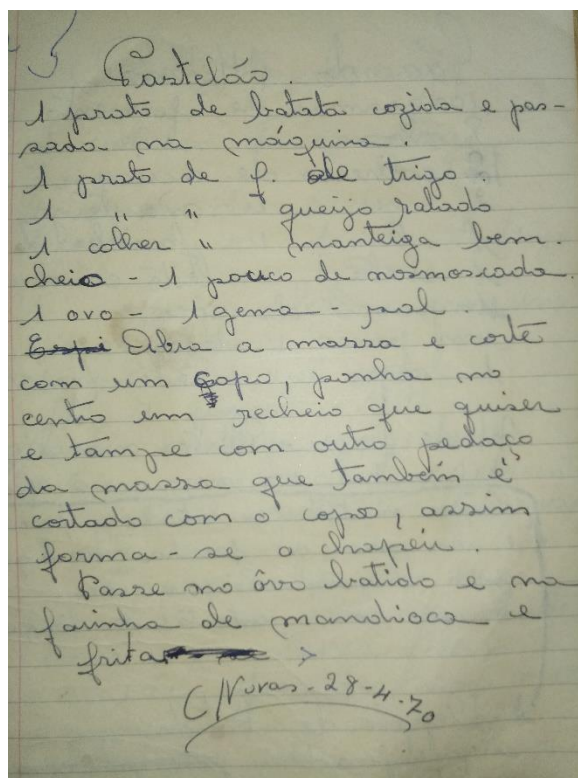 Pastelão.
1 prato de batata cozida e pas-
sada na máquina.
1 prato de f. de trigo.
1 " " queijo ralado
1 colher " manteiga bem
cheio - 1 pouco de nosmoscada.
1 ovo - 1 gema - sal.
Abra a massa e corte
com um copo, ponha no
centro um recheio que quiser
e tampe com outro pedaço
da massa que também é
cortado com o copo, assim
forma-se o chapéu.
Passe no ôvo batido e na
farinha de mandioca e
frita
28-4-70